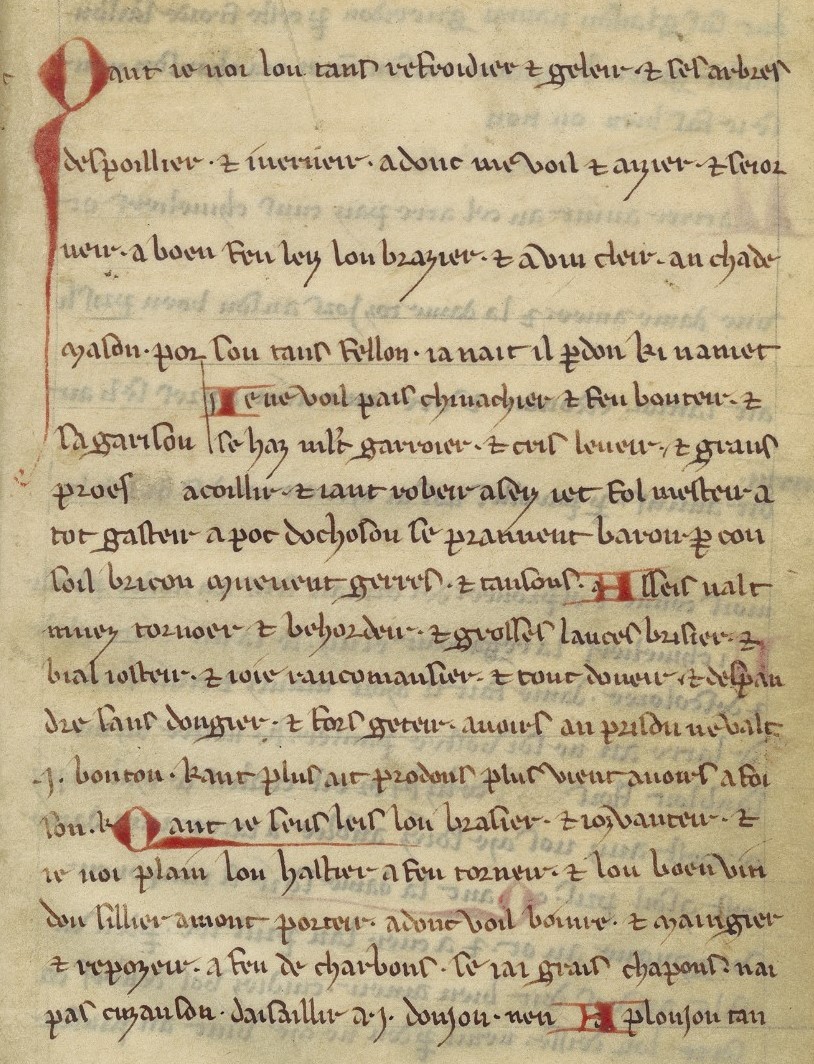 Qant ie uoi lou tans refroidier ⁊ geleir ⁊ ses arbres
despoillier · ⁊ iuerneir · adonc me voil ⁊ aizier · ⁊ seior
neir · a boen feu leiz lou brazier · ⁊ a vin cleir · an chade
mason · por lou tans fellon · ia nait il ꝑdon ki namet
Ie ne voil pais chiuachier ⁊ feu bouteir · ⁊
sa garison se haz mlt garroier · ⁊ cris leueir · ⁊ grans
proes acoillir · ⁊ iant robeir aseiz iet fol mesteir a
tot gasteir a poc dochoson se prannent baron ꝑ con
soil bricon muevent gerres · ⁊ tansons · Asseis ualt
muez tornoer ⁊ behordeir · ⁊ grosses lances brisier · ⁊
bial iosteir · ⁊ ioie rancomansier · ⁊ tout doneir · ⁊ despan
dre sans dongier · ⁊ fors geteir · auoirs an prison ne valt
·j· bouton · kant plus ait prodons plus vient auoirs a foi
son · Qant ie seus leis lou brasier · ⁊ ioz vanteir · ⁊
ie uoi plain lou hastier a feu torneir · ⁊ lou boen vin
dou sillier amont porteir · adonc voil boiure · ⁊ maingier
⁊ repozeir · a feu de charbons · se iai grais chapons · nai
pas cuzanson · daisaillir a ·j· donjon · nen A plonjon tan